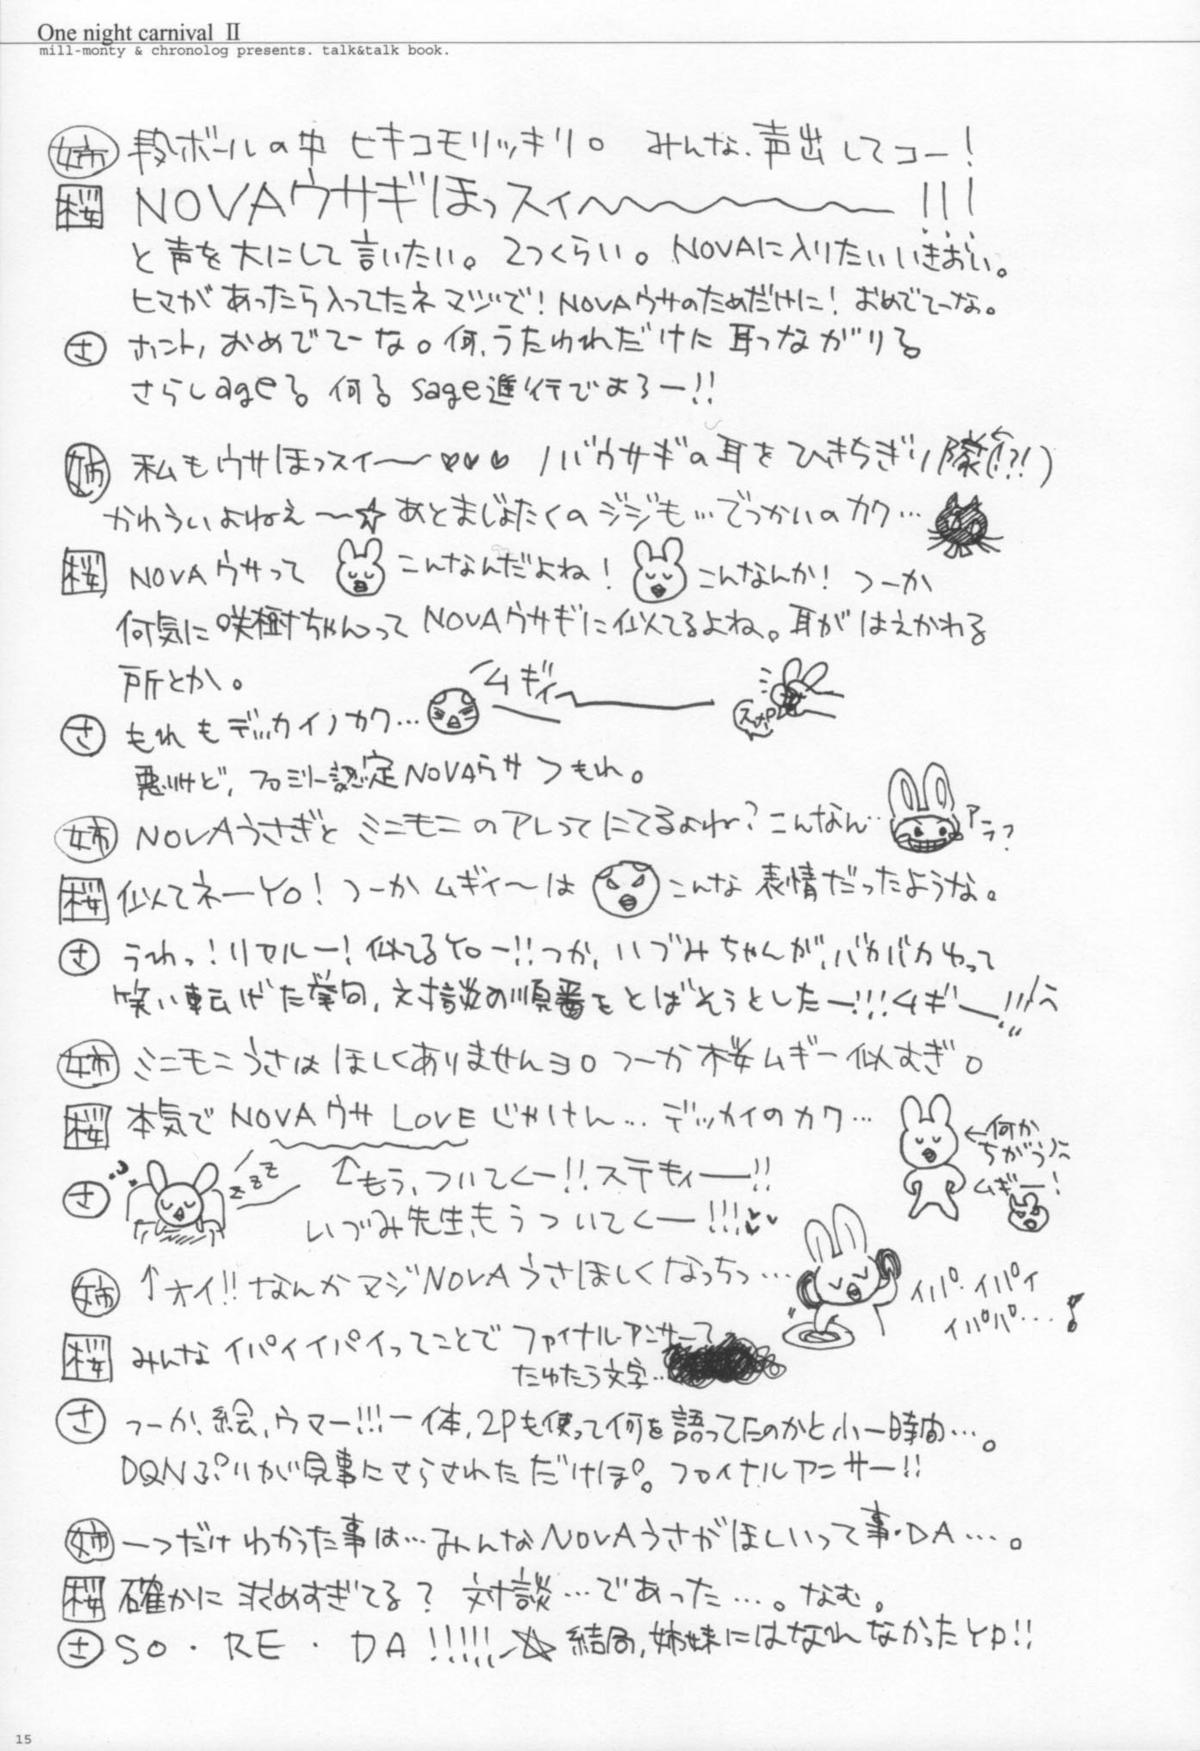 One night carnival II
mill-monty & chronolog presents. talk&talk book.
姉 段ボールの中 ヒキコモリッキリ。 みんな、声出してコー!
桜 NOVAウサギほっスィ〜〜〜〜!!!
と声を大にして言いたい。てっくらい。NOVAに入りたいいきおい。
ヒマがあったら入ってたネ マジで! NOVAウサのためだけに! おめでてーな。
さ ホント、おめでてーな。何、うたわれだけに耳つながりる
さらしageる 何る sage進行でよろー!!
姉 私もウサほっスィ〜♡♡♡ ノバウサギの耳をひきちぎり隊(!?!)
かわういよねぇ〜☆ あとまじょたくのジジも…でっかいのカク…
桜 NOVAウサって こんなんだよね! こんなんか! つーか
何気に咲樹ちゃんってNOVAウサギに似てるよね。耳がはえかわる
所とか。
ムギィ
さ もれもデッカイノカク…
悪いけど、ファミリー認定NOVAウサつもれ。
姉 NOVAうさぎとミニモニのアレってにてるよね?こんなん…
アラ?
桜 似てネーYO! つーかムギィ〜は こんな表情だったような。
さ うわっ!リアルー!似てるYOー!!つか、いづみちゃんが、バカバカゆって
笑い転げた挙句、対談の順番をとばそうとしたー!!!ムギー!!!
姉 ミニモニうさはほしくありませんヨ。つーか桜ムギー似すぎ。
桜 本気でNOVAウサLOVEじゃけん… デッカイのカク…
←何か
ちがう
ムギー!
さ zzz ↑もう、ついてくー!!ステキィー!!
いづみ先生もうついてくー!!!♥♥
姉 ↑オイ!!なんかマジNOVAうさほしくなっちっ…
イパ・イパイ
イパパ…♪
桜 みんなイパイイパイってことでファイナルアンサーて
たゆたう文字…
さ つーか、絵、ウマー!!!一体、2Pも使って何を語ってたのかと小一時間…。
DQNぷりが見事にさらされただけぽ。ファイナルアンサー!!
姉 一つだけわかった事は…みんなNOVAうさがほしいって事・DA…。
桜 確かに求めすぎてる? 対談…であった…。なむ。
さ SO・RE・DA!!!!!☆ 結局、姉妹にはなれなかったYP!!
15